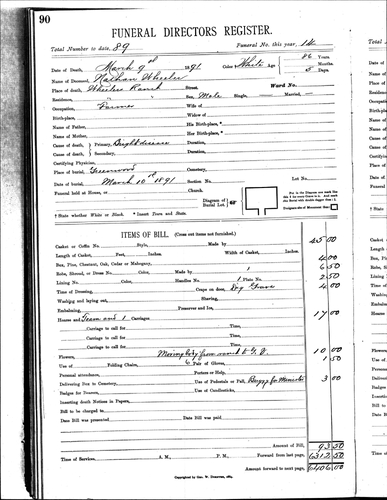 90
FUNERAL DIRECTORS REGISTER.
Total Number to date, 89 Funeral No. this year, 14
Date of Death, March 9th 1891 Color † White Age 86 Years
Months
Name of Deceased, Nathan Wheeler 5 Days.
Place of death, Wheeler Ranch Street. Ward No.
Residence, Sex, Male Single, Married,
Occupation, Farmer Wife of
Birth-place, Widow of
Name of Father, His Birth-place,*
Name of Mother, Her Birth-place,*
Cause of death, Primary, Brights disease Duration,
Cause of death, Secondary, Duration,
Certifying Physician,
Place of burial, Greenwood Cemetery,
Date of burial, March 10th 1891 Section No. Lot No.
Funeral held at House, or Church.
Diagram of Burial Lot.
† State whether White or Black. * Insert Town and State.
ITEMS OF BILL. (Cross out items not furnished.)
Casket or Coffin No. Style, Made by 45 00
Length of Casket, Feet, Inches. Width of Casket, Inches.
Box, Pine, Chestnut, Oak, Cedar or Mahogany, 4 00
Robe, Shroud, or Dress No. Color, Made by 6 50
Lining No. Color, Handles No. Plate No. 2 50
Time of Dressing, Crape on door, 4 00
Washing and laying out, Shaving,
Embalming, Preserve and Ice,
Hearse and Team and 1 Carriages 17 00
Carriage to call for Time,
Carriage to call for Time,
Carriage to call for Time,
Flowers, Moving body from 10 00
Use of Folding Chairs, 6 Pair of Gloves, 1 50
Personal attendance, Porters or Help,
Delivering Box to Cemetery, Use of Pedestals or Pall, Buggy for Minister 3 00
Badges for Bearers, Use of Candlesticks,
Inserting death Notices in Papers,
Bill to be charged to
Date Bill was presented Date Bill was paid
Amount of Bill, 93 50
Time of Services, A. M., P. M., Forward from last page, 6312 50
Amount forward to next page, 6406 00